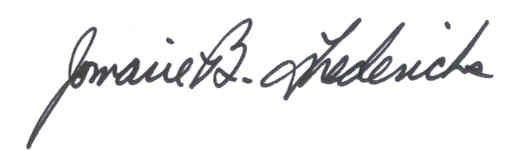 Jomarie B. Fredericks